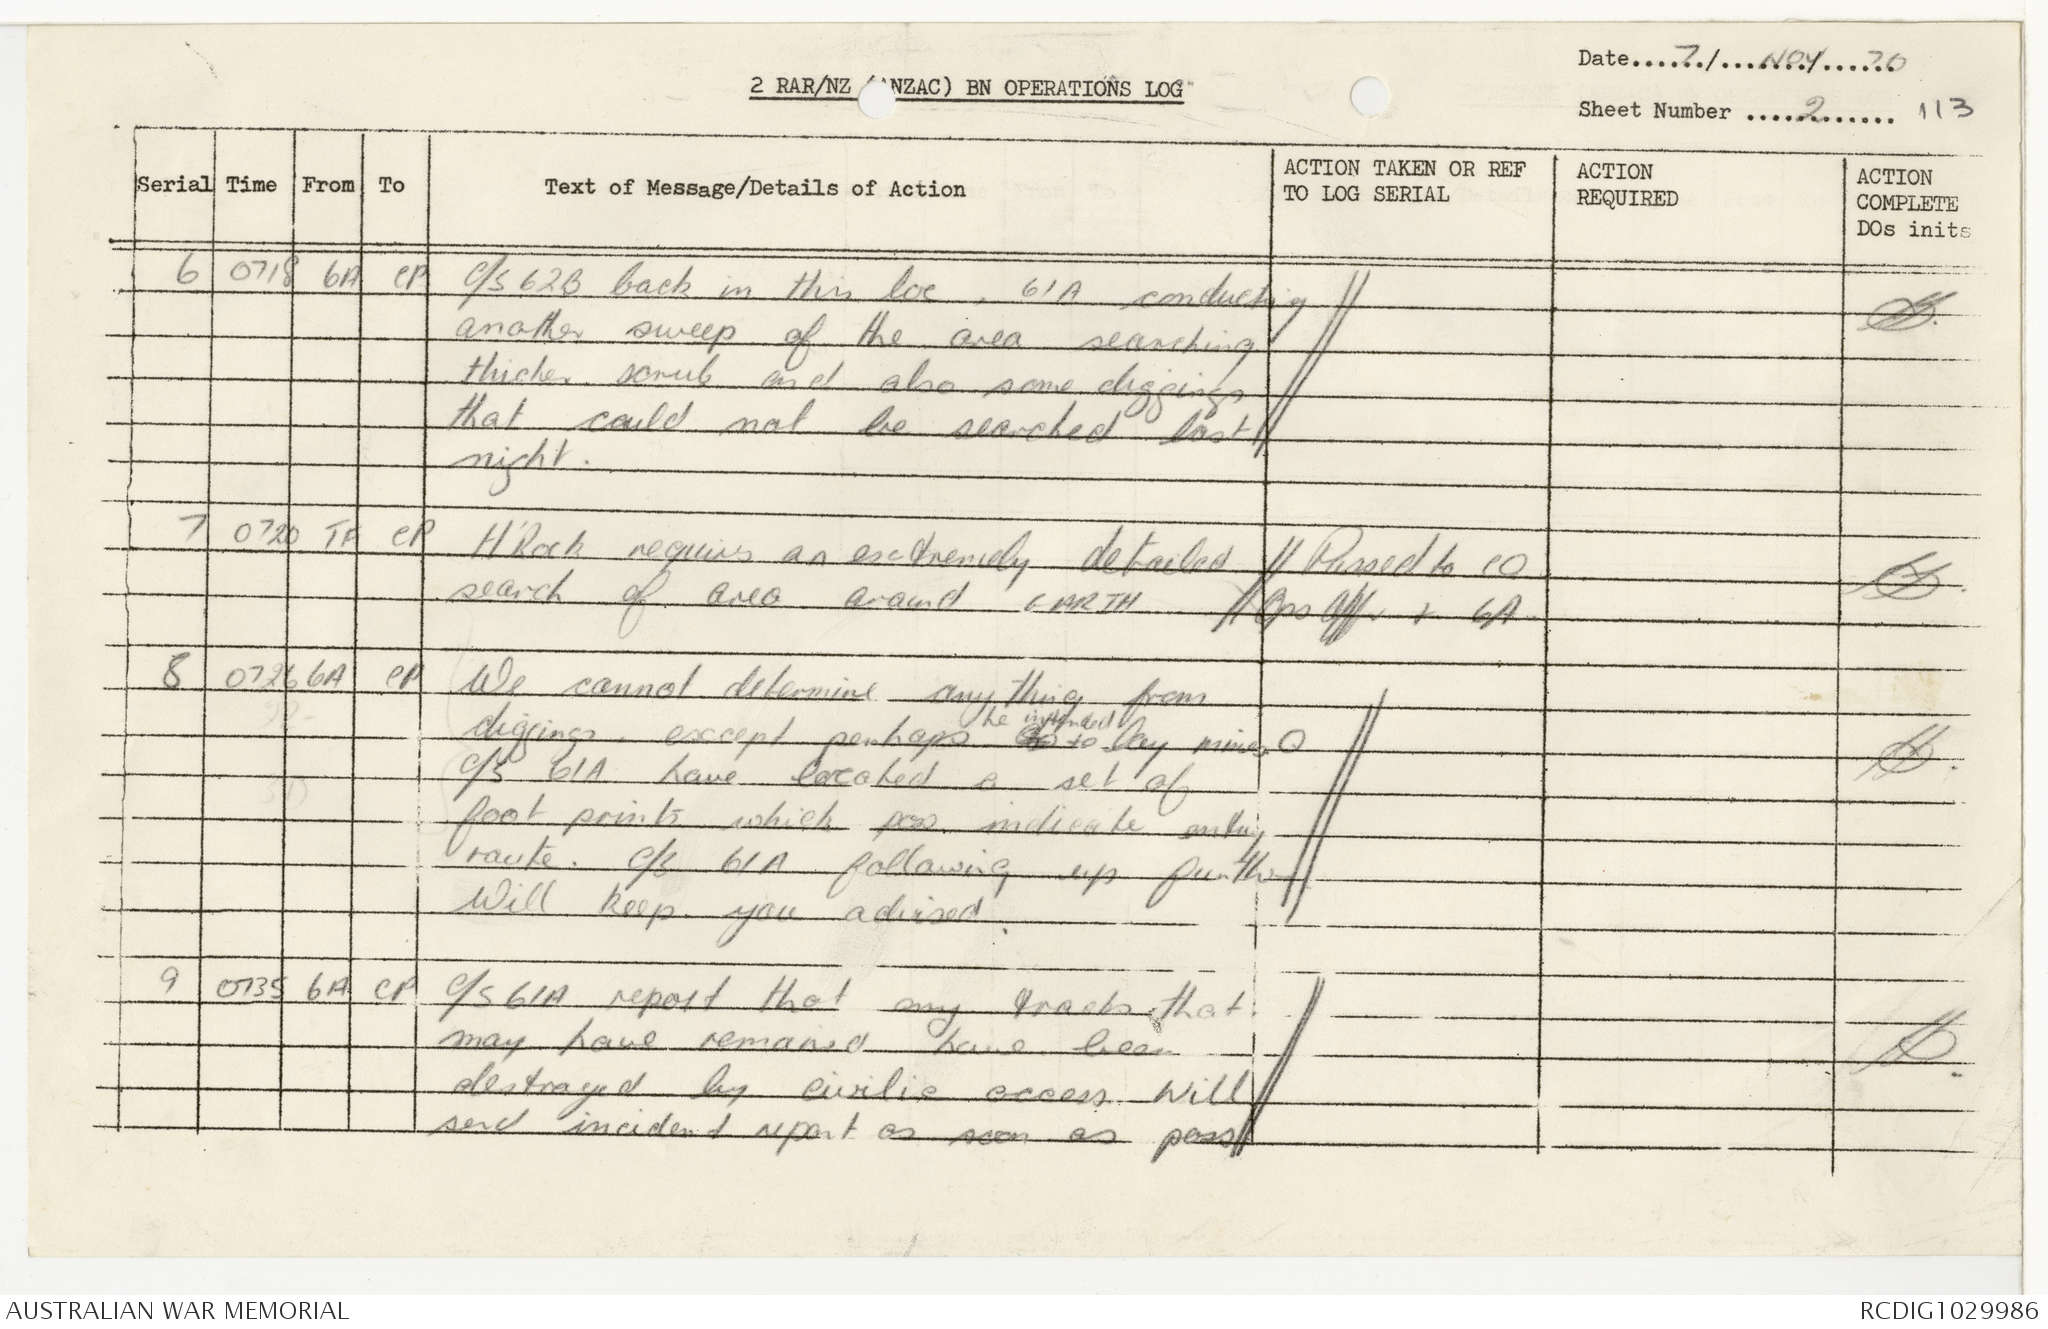 Date.....7./...NOV./...70
2 RAR/NZ (ANZAC) BN OPERATIONS LOG
Sheet Number .....2...... 113
Serial Time From To Text of Message/Details of Action ACTION TAKEN OR REF TO LOG SERIAL ACTION REQUIRED ACTION COMPLETE DOs inits
6 0718 6A CP C/S 62B back in this loc, 61A conducting
another sweep of the area searching
thicker scrub and also some diggings
that could not be searched last
night.
7 0720 TF CP H'Rock requires an extremely detailed // Passed to CO
search of area around GARTH // Ops Offr + 6A
8 0726 6A CP We cannot determine anything from
diggings except perhaps he intended to lay mines
C/S 61A have located a set of
foot prints which poss indicate entry
route. C/S 61A following up further
Will keep you advised.
9 0735 6A CP C/S 61A report that any tracks that
may have remained have been
destroyed by civilic access. Will
send incident report as soon as poss
AUSTRALIAN WAR MEMORIAL
RCDIG1029986